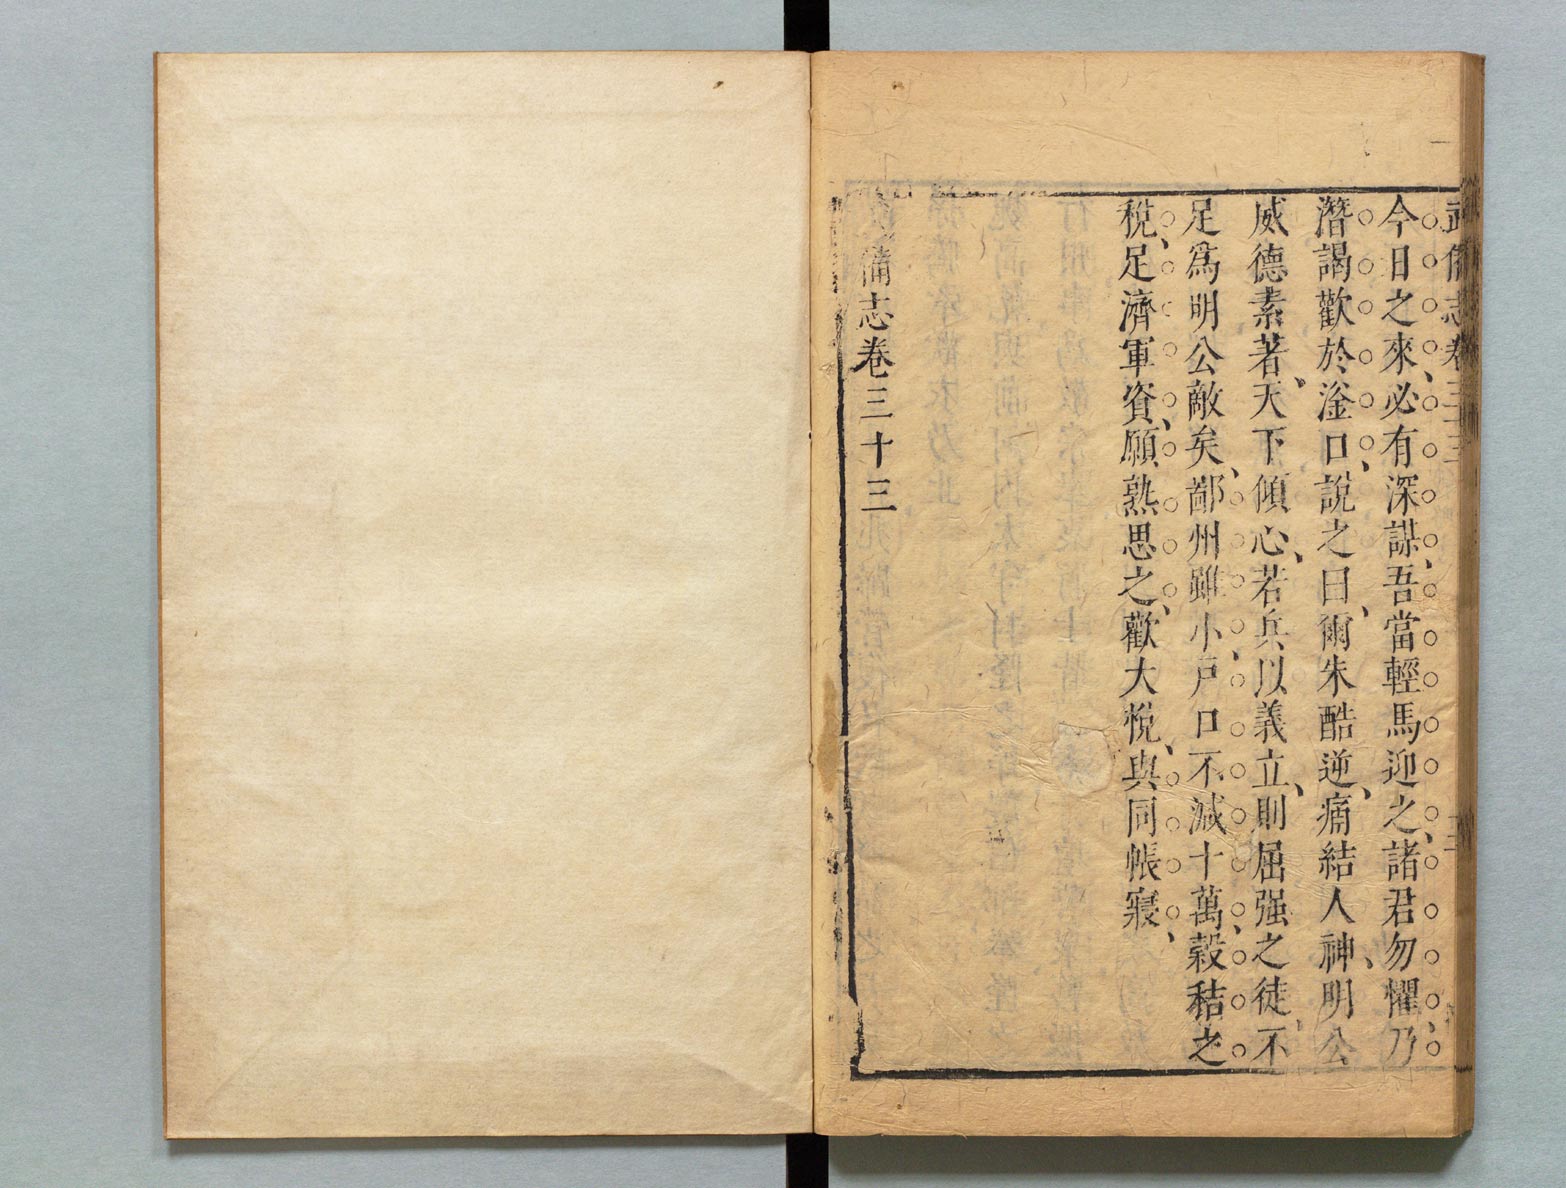 武備志卷三十三
今日之來、必有深謀、吾當輕馬迎之、諸君勿懼、乃
潛謁歡於滏口、說之曰、爾朱酷逆、痛結人神、明公
威德素著、天下傾心、若兵以義立、則屈强之徒、不
足爲明公敵矣、鄙州雖小、戸口不減十萬、穀秸之
稅、足濟軍資、願熟思之、歡大悅、與同帳寢、
備志卷三十三